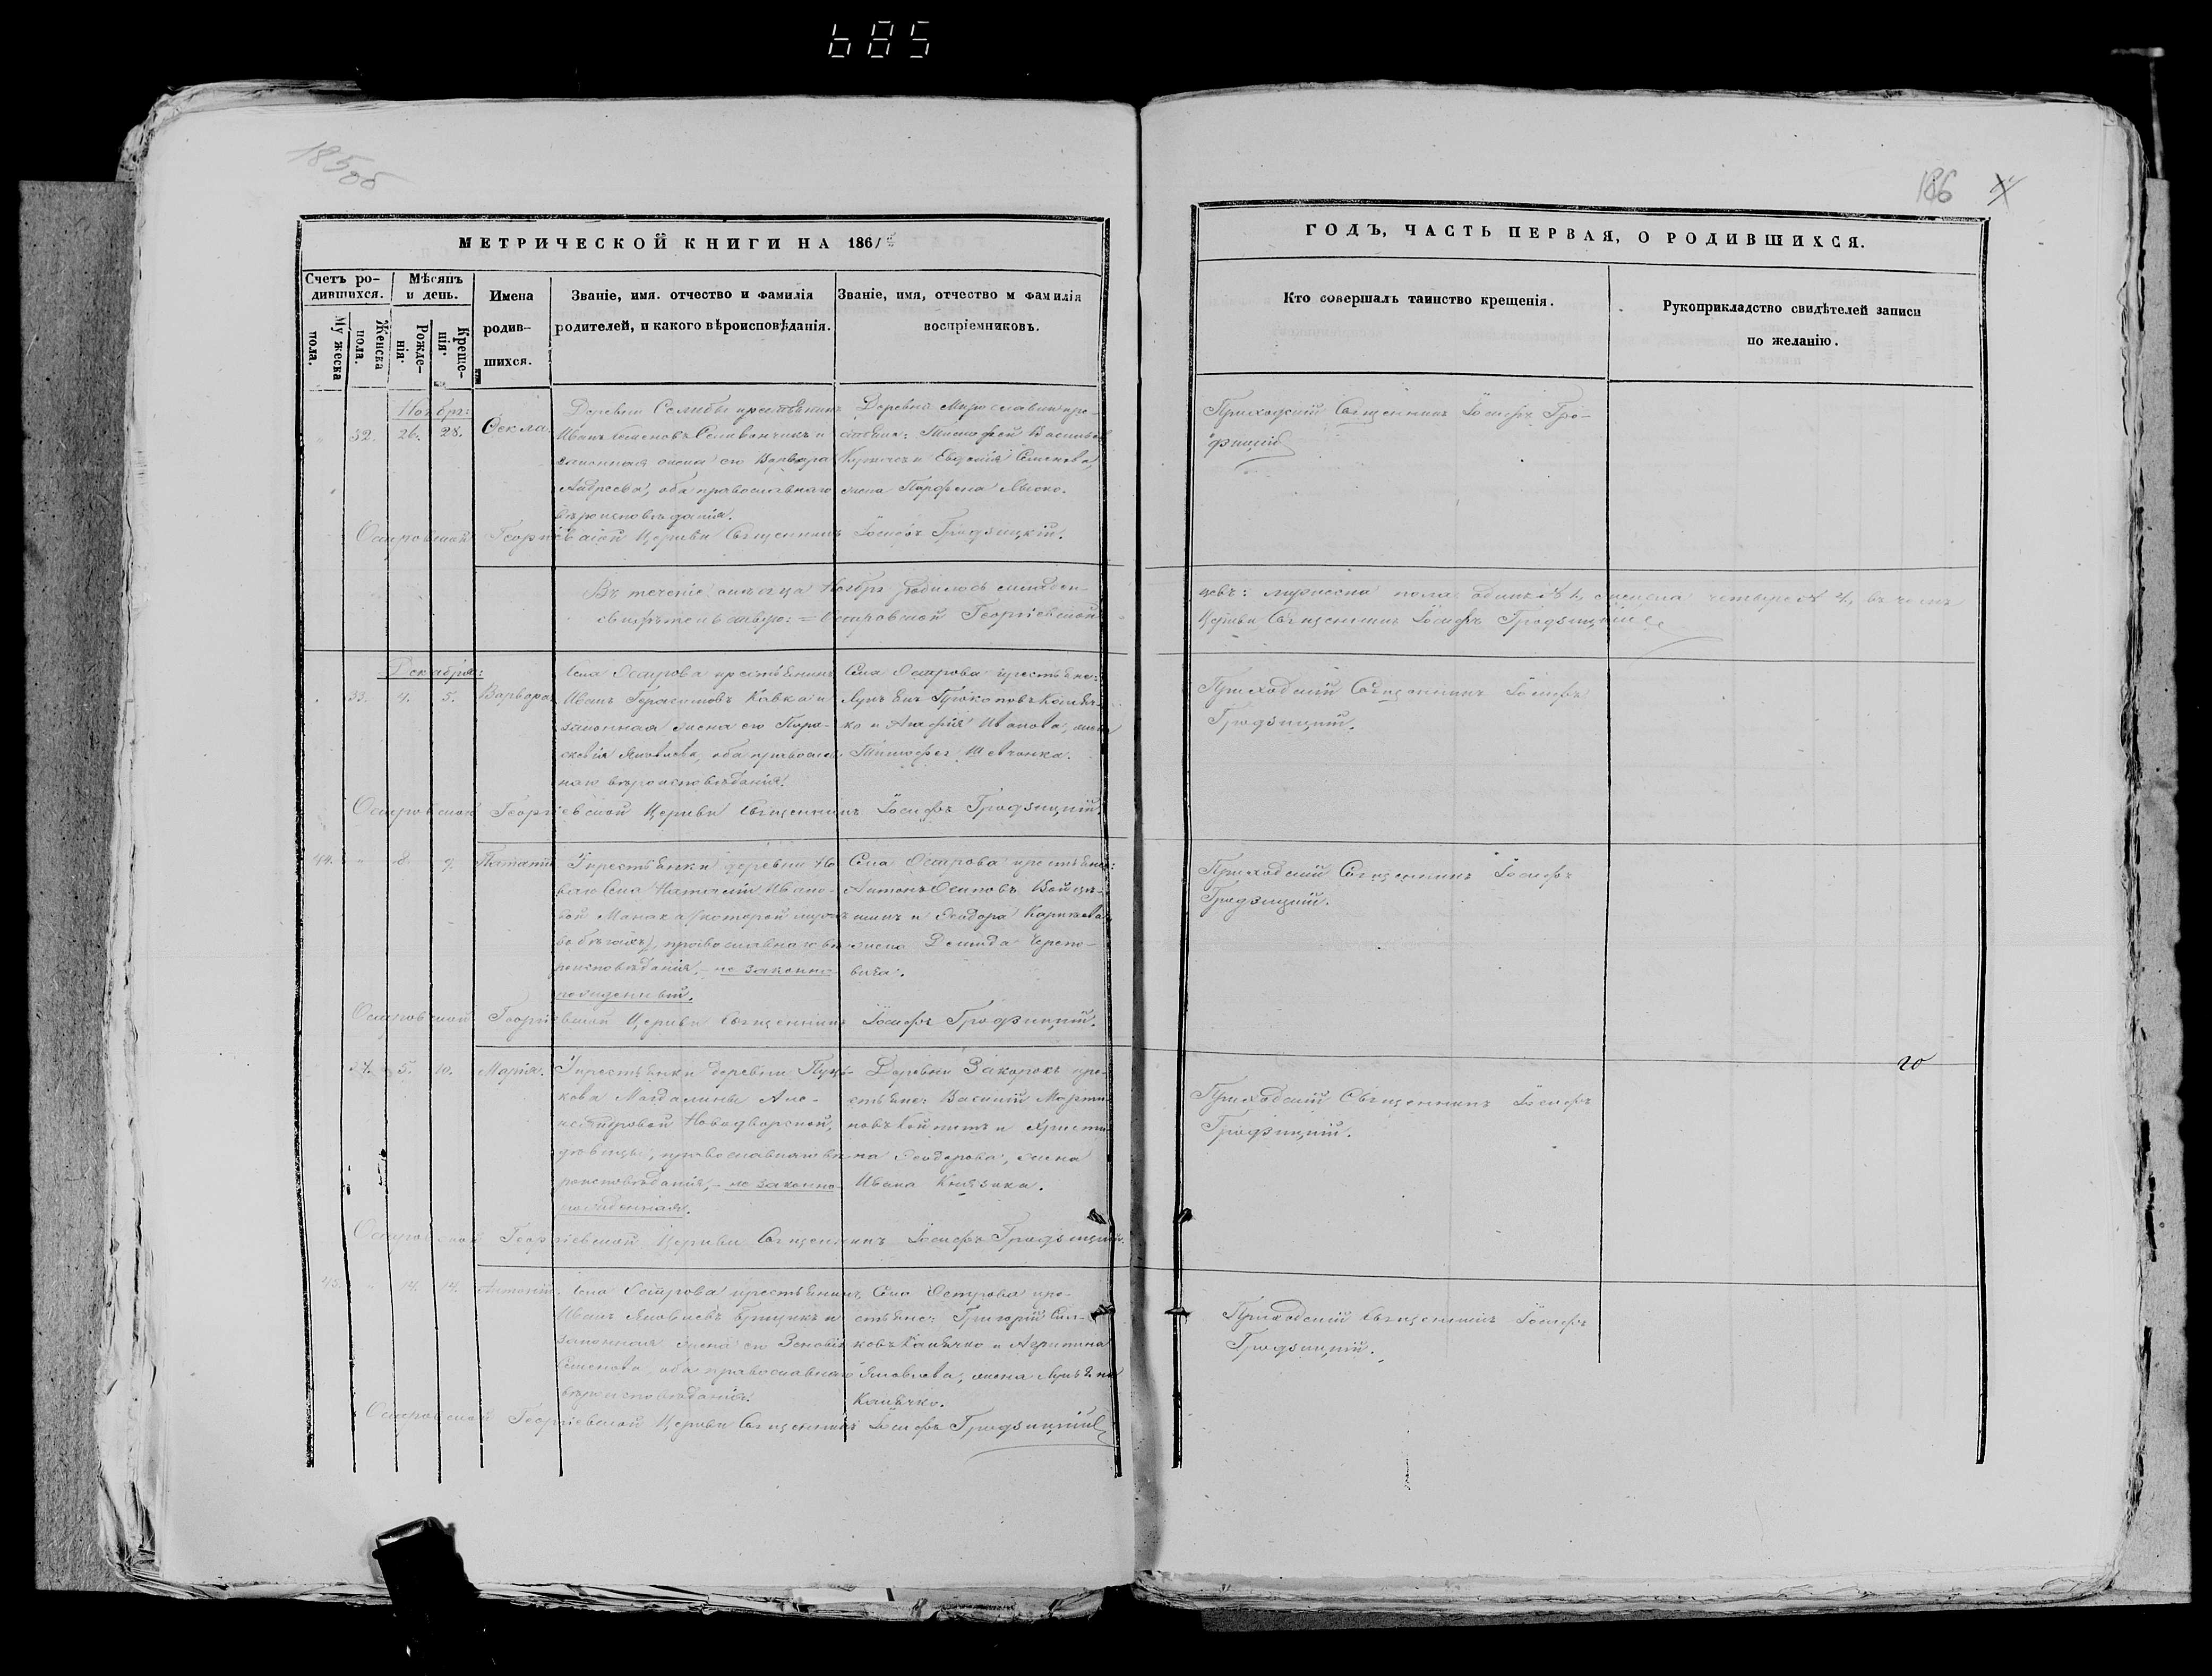 685
185об
186
МЕТРИЧЕСКОЙ КНИГИ НА 186/
ГОДЪ, ЧАСТЬ ПЕРВАЯ, О РОДИВШИХСЯ.
Счетъ ро-
дившихся.
Мужеска
пола.
Женска
пола.
Мѣсяцъ
и день.
Рожде-
нія.
Креще-
нія.
Имена
родив-
шихся.
Званіе, имя. отчество и фамилія
родителей, и какого вѣроисповѣданія.
Званіе, имя, отчество и фамилія
воспріемниковъ.
Кто совершалъ таинство крещенія.
Рукоприкладство свидѣтелей записи
по желанію.
Ноябрь:
32. 26. 28. Ѳекла.
Деревни Селибы крестьянинъ
Иванъ Семеновъ Селиванчикъ и
законная жена его Варвара
Андреева, оба православнаго
вѣроисповѣданія.
Деревни Мирославки кре-
стьяне: Тимофей Васильевъ
и Евдокія Семенова,
жена Парфена
Приходскій Священникъ Іосифъ Гро-
дзицкій
Островской Георгіевской Церкви Священникъ Іосифъ Гродзицкій.
Въ теченіе мѣсяца Ноября родилось младен-
цевъ: мужеска пола одинъ 1, женска четыре 4, въ чемъ
свидѣтельствую: = Островской Георгіевской
Церкви Священникъ Іосифъ Гродзицкій
Декабрь:
33. 4. 5. Варвара
Села Острова крестьянинъ
Иванъ Герасимовъ Кавка и
законная жена его Пара-
скевія Яковлева, оба православ-
наго вѣроисповѣданія.
Села Острова крестьяне:
Лукьянъ Прокоповъ Канѣч-
ко и Агафія Иванова, жена
Тимофея Шевчонка.
Приходскій Священникъ Іосифъ
Гродзицкій.
Островской Георгіевской Церкви Священникъ Іосифъ Гродзицкій.
44. " 8. 9.
У крестьянки деревни Но-
ваго Села Наталіи Ивано-
вой Манаха (которой мужъ
въ бѣгахъ), православнаго вѣ-
роисповѣданія, – не законно-
рожденный.
Села Острова крестьяне:
Антонъ Осиповъ
и Ѳеодора
жена Демида Черепо-
вича.
Приходскій Священникъ Іосифъ
Гродзицкій.
Островской Георгіевской Церкви Священникъ Іосифъ Гродзицкій.
34. 5. 10. Марія.
У крестьянки деревни Пуць-
кова Магдалины Але-
ксандровой Новодворской,
дѣвицы, православнаго вѣ-
роисповѣданія, – не законно-
рожденная.
Деревни Закорокъ кре-
стьяне: Василій Марти-
новъ и Христи-
на Ѳеодорова, жена
Ивана
Приходскій Священникъ Іосифъ
Гродзицкій.
Островской Георгіевской Церкви Священникъ Іосифъ Гродзицкій.
45. " 14. 14. Антоній.
Села Острова крестьянинъ
Иванъ Яковлевъ и
законная жена его Зеновія
Семенова, оба православнаго
вѣроисповѣданія.
Села Острова кре-
стьяне: Григорій
Канѣчко и Агрипина
Яковлева, жена Лукьяна
Канѣчко.
Приходскій Священникъ Іосифъ
Гродзицкій.
Островской Георгіевской Церкви Священникъ Іосифъ Гродзицкій